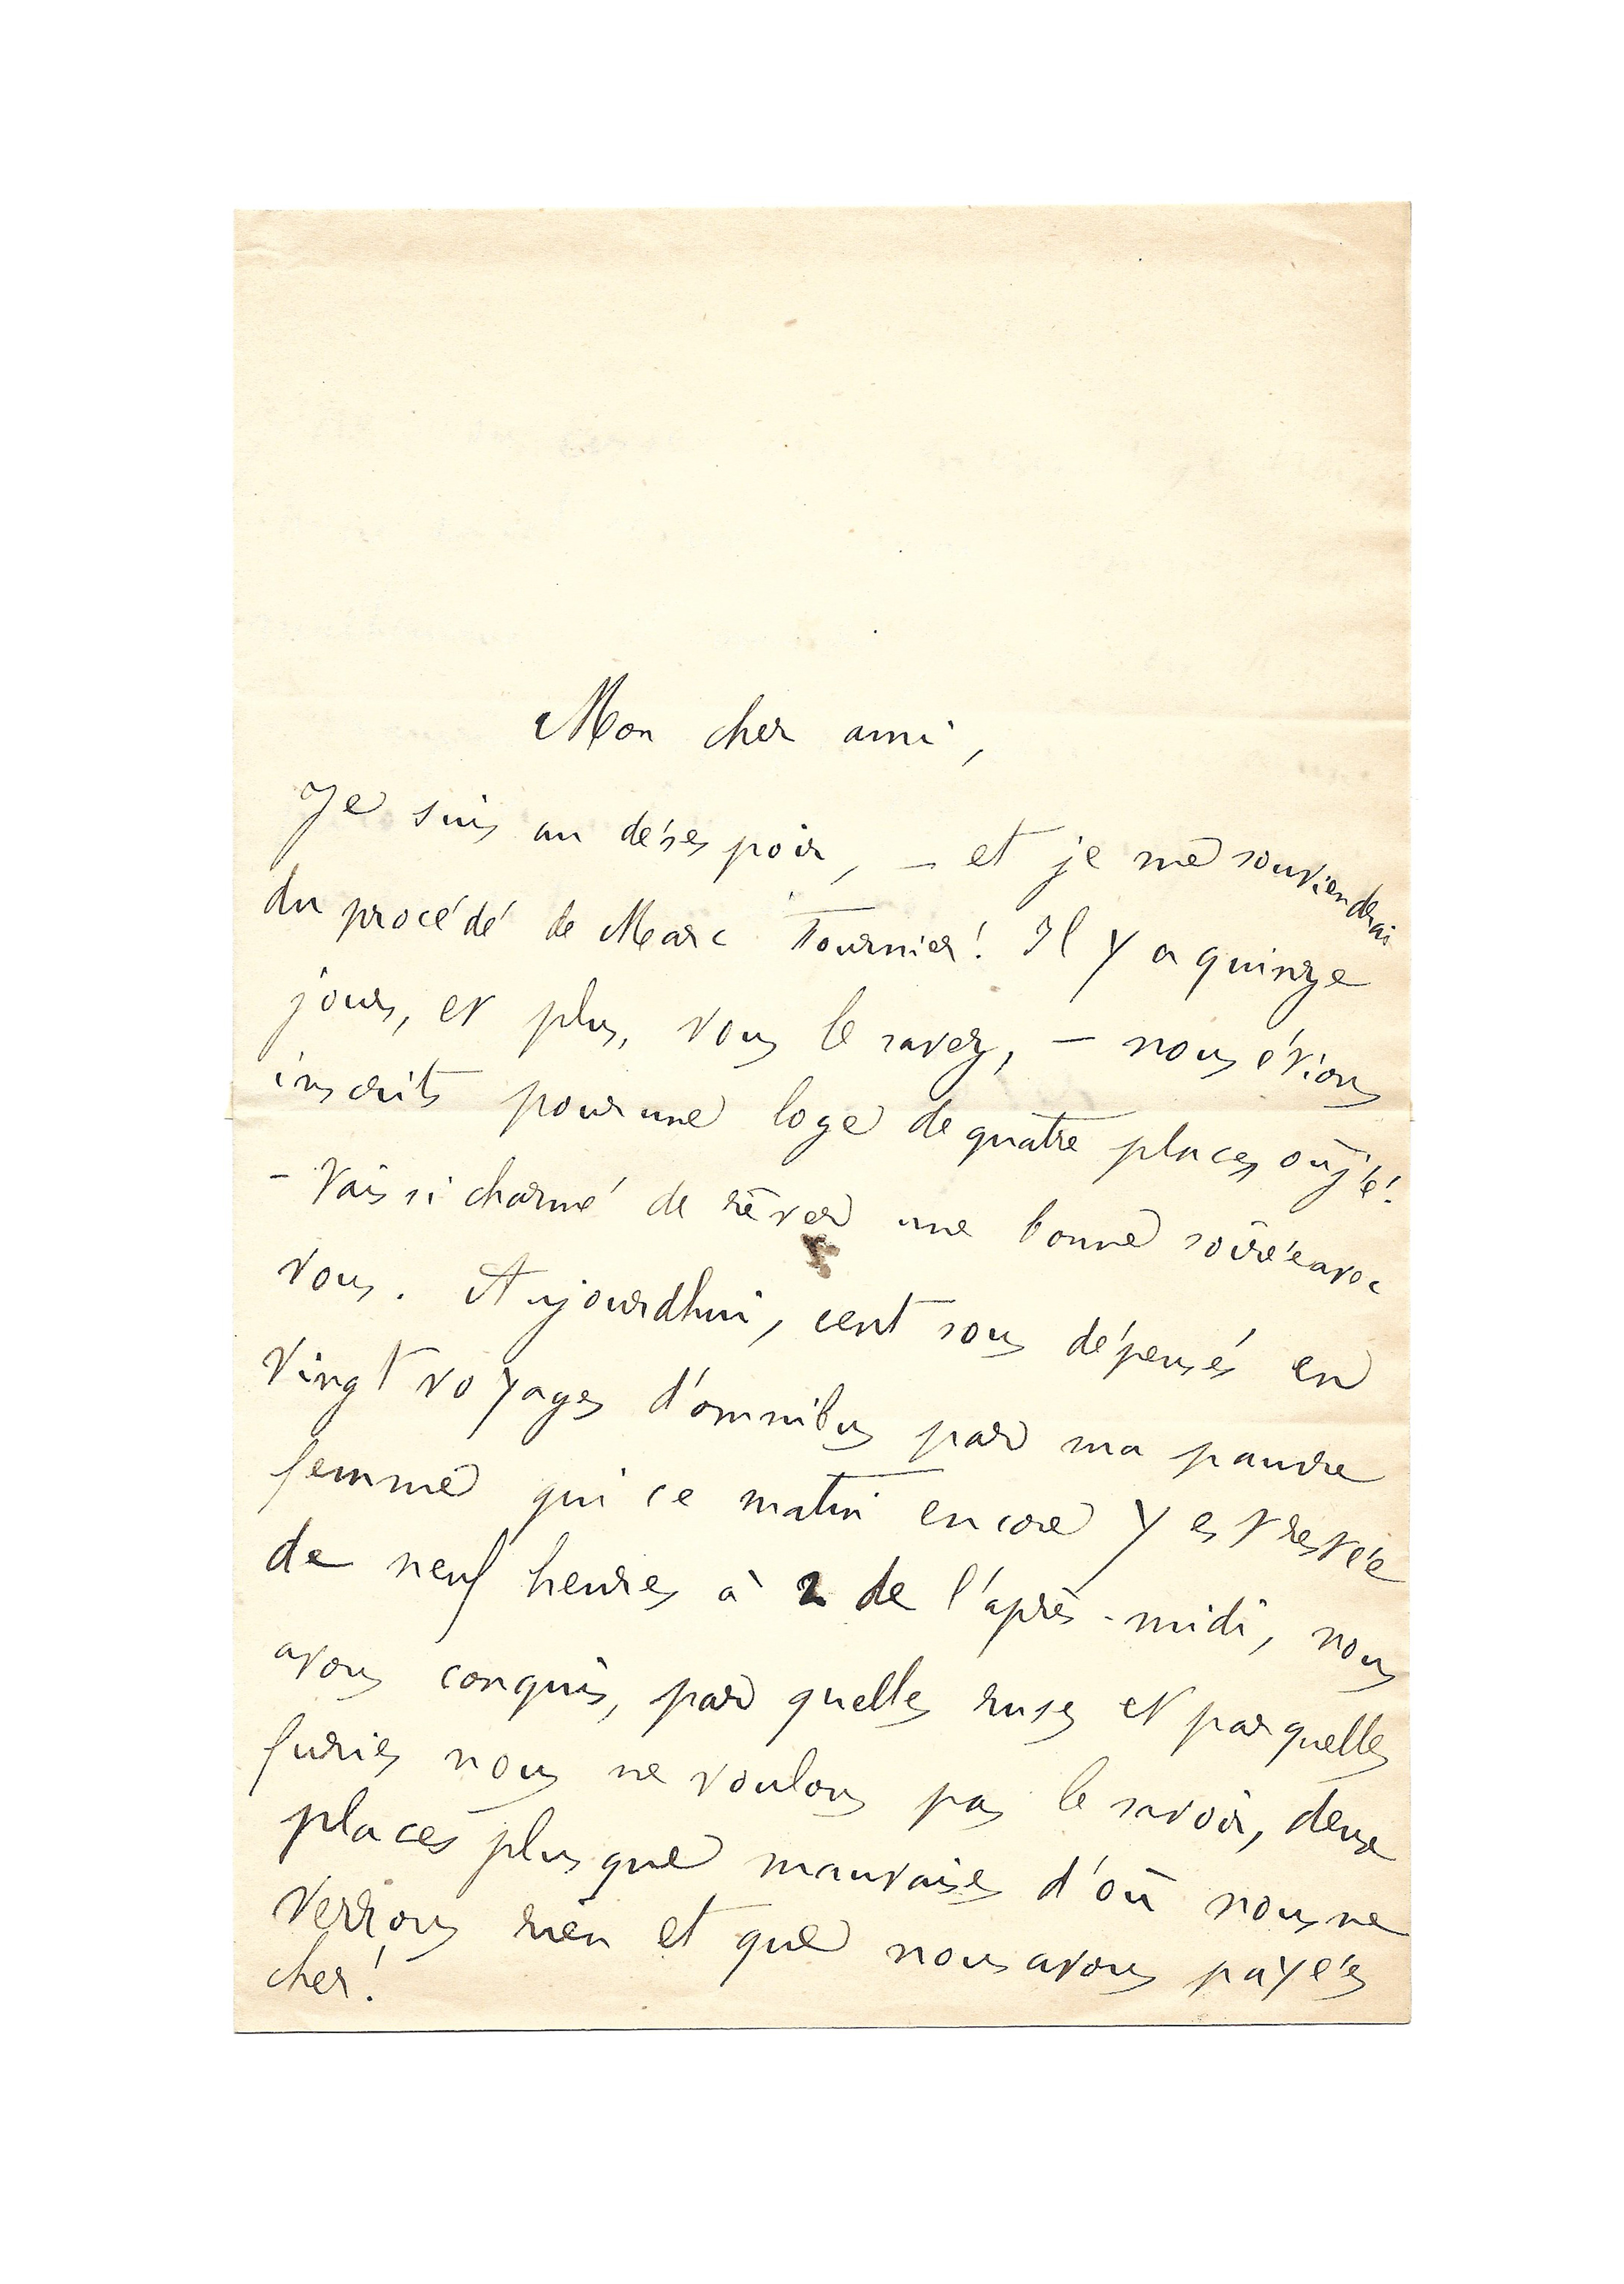 Mon cher ami,
Je suis au désespoir, — et je me souviendrai
du procédé de Marc Fournier! Il y a quinze
jours, et plus, vous le savez, — nous étions
inscrits pour une loge de quatre places où j'é-
- tais si charmé de rêver une bonne soirée avec
vous. Aujourdhui, cent sous dépensés en
vingt voyages d'omnibus par ma pauvre
femme qui ce matin encore y est restée
de neuf heures à 2 de l'après-midi, nous
avons conquis, par quelles ruses et par quelles
furies nous ne voulons pas le savoir, deux
places plus que mauvaises d'où nous ne
verrons rien et que nous avons payées
cher!